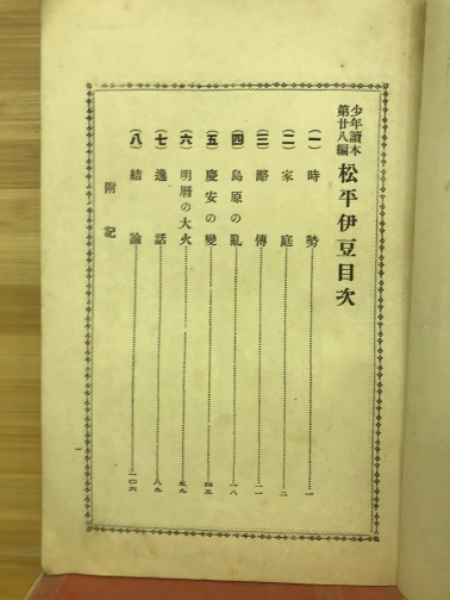 少年讀本
第廿八編
松平伊豆目次
(一) 時勢 一
(二) 家庭 二
(三) 略傳 一一
(四) 島原の亂 一八
(五) 慶安の變 四五
(六) 明曆の大火 五九
(七) 逸話 八九
(八) 結論 一〇六
附記
一